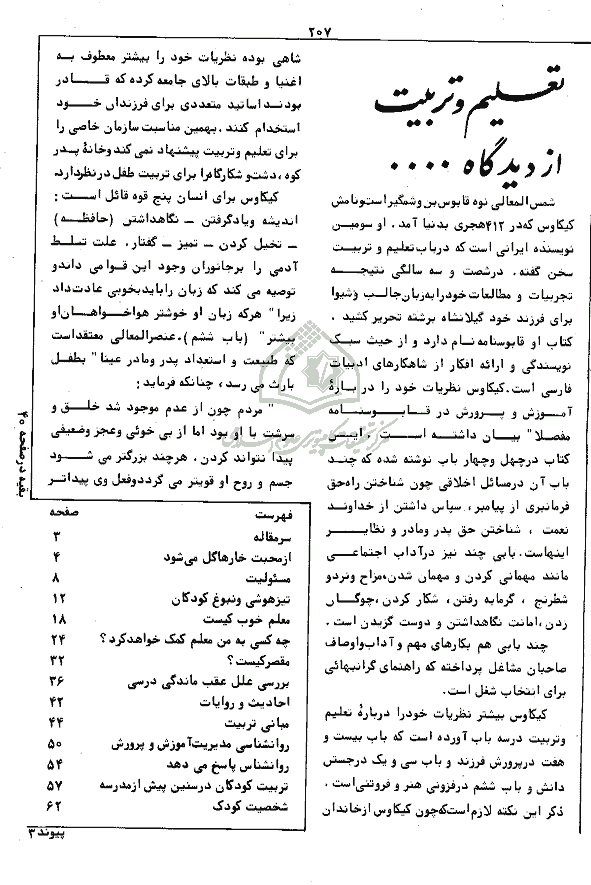 ۲۰۷
تعلیم و تربیت
از دیدگاه ....
شمس‌المعالی نوه قابوس‌بن‌وشمگیر است‌و نامش
کیکاوس که‌در ۴۱۲ هجری بدنیا آمد. او سومین
نویسنده ایرانی است که درباب‌تعلیم و تربیت
سخن گفته. درشصت و سه سالگی نتیجه
تجربیات و مطالعات خودرا به‌زبان‌جالب و شیوا
برای فرزند خود گیلانشاه برشته تحریر کشید.
کتاب او قابوسنامه نام دارد و از حیث سبک
نویسندگی و ارائه افکار از شاهکارهای ادبیات
فارسی است. کیکاوس نظریات خود را دربارهٔ
آموزش و پرورش در قابوسنامه
مفصلا" بیان داشته است. ایسن
کتاب درچهل وچهار باب نوشته شده که چند
باب آن درمسائل اخلاقی چون شناختن راه‌حق
فرمانبری از پیامبر، سپاس داشتن از خداوند
نعمت، شناختن حق پدر ومادر و نظایر
اینهاست. بابی چند نیز درآداب اجتماعی
مانند مهمانی کردن و مهمان شدن، مزاح ونردو
شطرنج، گرمابه رفتن، شکار کردن، چوگان
زدن، امانت نگاهداشتن و دوست گزیدن است.
چند بابی هم بکارهای مهم و آداب‌واوصاف
صاحبان مشاغل پرداخته که راهنمای گرانبهائی
برای انتخاب شغل است.
کیکاوس بیشتر نظریات خودرا دربارهٔ تعلیم
وتربیت درسه باب آورده است که باب بیست و
هفت درپرورش فرزند و باب سی و یک درجستن
دانش و باب ششم درفزونی هنر و فروتنی‌است.
ذکر این نکته لازم‌است‌که‌چون کیکاوس ازخاندان
شاهی بوده نظریات خود را بیشتر معطوف به
اغنیا و طبقات بالای جامعه کرده که قادر
بودند اساتید متعددی برای فرزندان خود
استخدام کنند. بهمین مناسبت سازمان خاصی را
برای تعلیم وتربیت پیشنهاد نمی کند وخانهٔ پدر
کوه، دشت‌و شکارگاه‌را برای تربیت طفل درنظردارد.
کیکاوس برای انسان پنج قوه قائل است:
اندیشه ویادگرفتن - نگاهداشتن (حافظه)
- تخیل کردن - تمیز - گفتار. علت تسلط
آدمی را برجانوران وجود این قوا می داندو
توصیه می کند که زبان رابایدبخوبی عادت‌داد
زیرا" هرکه زبان او خوشتر هواخواهان‌او
بیشتر" (باب ششم). عنصرالمعالی معتقداست
که طبیعت و استعداد پدر ومادر عینا" بطفل
بارث می رسد، چنانکه فرماید:
" مردم چون از عدم موجود شد خلق و
سرشت با او بود اما از بی خوئی وعجز وضعیفی
پیدا نتواند کردن. هرچند بزرگتر می شود
جسم و روح او قویتر می گرددوفعل وی پیداتر
بقیه درصفحه ۴۰
فهرست صفحه
سرمقاله ۳
ازمحبت خارهاگل می‌شود ۴
مسئولیت ۸
تیزهوشی ونبوغ کودکان ۱۲
معلم خوب کیست ۱۸
چه کسی به من معلم کمک خواهدکرد؟ ۲۴
مقصرکیست؟ ۳۲
بررسی علل عقب ماندگی درسی ۳۶
احادیث و روایات ۴۲
مبانی تربیت ۴۴
روانشناسی مدیریت‌آموزش و پرورش ۵۰
روانشناس پاسخ می دهد ۵۴
تربیت کودکان درسنین پیش ازمدرسه ۵۷
شخصیت کودک ۶۲
پیوند ۳